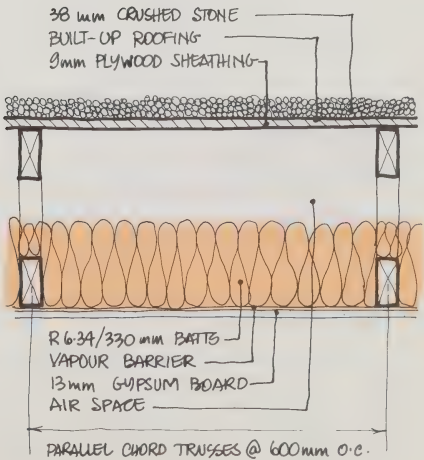 38 mm CRUSHED STONE
BUILT-UP ROOFING
9mm PLYWOOD SHEATHING
R 6.34/330 mm BATTS
VAPOUR BARRIER
13 mm GYPSUM BOARD
AIR SPACE
PARALLEL CHORD TRUSSES @ 600 mm O.C.